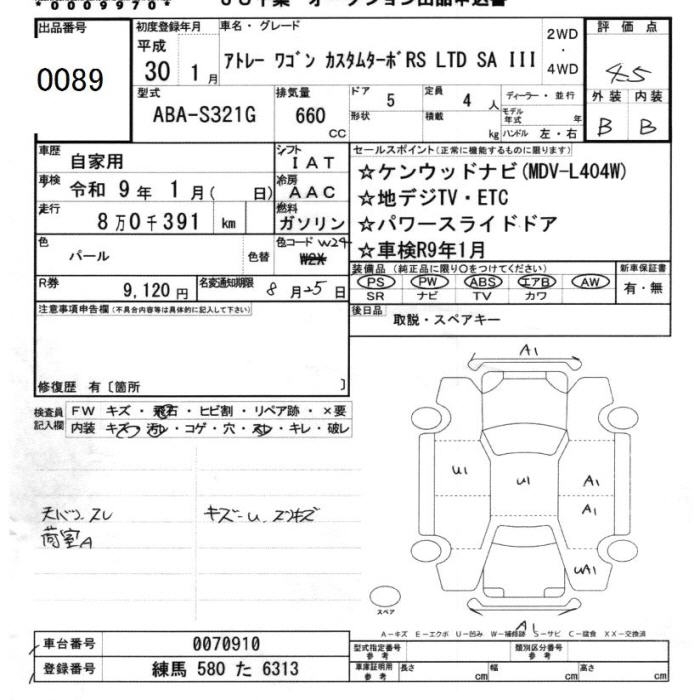 *0009970*
オークション出品申込書
出品番号
0089
初度登録年月
平成
30 1月
車名・グレード
アトレー ワゴン カスタムターボRS LTD SA III
2WD
・
4WD
評価点
4.5
外装 内装
B B
型式
ABA-S321G
排気量
660
CC
ドア
5
定員
4 人
ディーラー・並行
形状
積載
kg
モデル
年式
年
ハンドル 左・右
車歴
自家用
シフト
IAT
車検
令和 9年 1月( 日)
冷房
AAC
走行
8万0千391 km
燃料
ガソリン
色
パール
色替
色コード W24
W2X
R券
9,120円
名変通知期限
8月25日
セールスポイント(正常に機能するものに限ります)
☆ケンウッドナビ(MDV-L404W)
☆地デジTV・ETC
☆パワースライドドア
☆車検R9年1月
装備品(純正品に限り○をつけてください)
PS PW ABS エアB AW
SR ナビ TV カワ
新車保証書
有・無
後日品
取説・スペアキー
注意事項申告欄(不具合内容等は具体的に記入して下さい)
修復歴 有〔箇所 〕
検査員
記入欄
FW キズ・飛石・ヒビ割・リペア跡・×要
内装 キズ・汚レ・コゲ・穴・スレ・キレ・破レ
天バリ スレ
荷室A
キズ=U、スリキズ
A1
U1
U1
A1
A1
UA1
A1
スペア
A-キズ E-エクボ U-凹み W-補修跡 S-サビ C-腐食 XX-交換済
車台番号
0070910
登録番号
練馬 580 た 6313
型式指定番号
参考
類別区分番号
参考
車庫証明用
参考
長さ cm
幅 cm
高さ cm